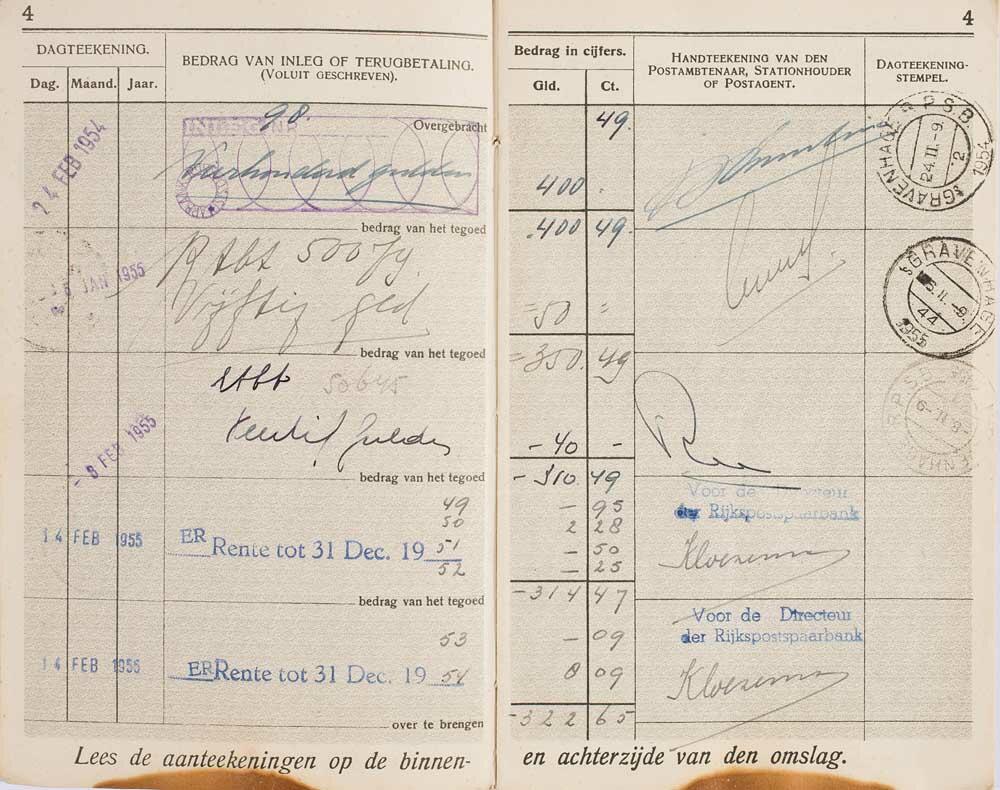 4
DAGTEEKENING.
Dag. Maand. Jaar.
BEDRAG VAN INLEG OF TERUGBETALING.
(VOLUIT GESCHREVEN).
98.
INLEG NR
Overgebracht
24 FEB 1954
Vierhonderd gulden
bedrag van het tegoed
JAN 1955
R tbt 500 Jy.
Vijftig gld
bedrag van het tegoed
tbt 50645
- 8 FEB 1955
Veertig gulden
bedrag van het tegoed
49
50
14 FEB 1955
ER Rente tot 31 Dec. 19 51
52
bedrag van het tegoed
53
14 FEB 1955
ER Rente tot 31 Dec. 19 54
over te brengen
Lees de aanteekeningen op de binnen-
4
Bedrag in cijfers.
Gld. Ct.
HANDTEEKENING VAN DEN
POSTAMBTENAAR, STATIONHOUDER
OF POSTAGENT.
DAGTEEKENING-
STEMPEL.
49.
400 .
400 49.
=50 =
=350. 49
- 40 -
- 310 49
- 95
2 28
- 50
- 25
- 314 47
- 09
8 09
- 322 65
R.P.S.B.
24.II.-9.
2
1954
'SGRAVENHAGE
'SGRAVENHAGE
.II.-9.
44
1955
R.P.S.
Voor de Directeur
der Rijkspostspaarbank
Kloezeman
Voor de Directeur
der Rijkspostspaarbank
Kloezeman
en achterzijde van den omslag.